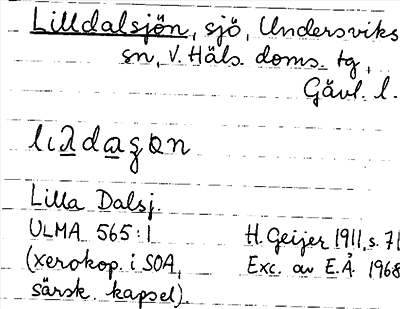 Lilldalsjön, sjö, Undersviks
sn, V. Häls. doms. tg,
Gävl. l.
Lilla Dalsj.
ULMA 565:1 H. Geijer 1911, s. 71
(xerokop. i SOA, Exc. av E.Å. 1968
särsk. kapsel).